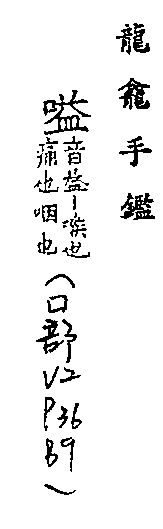 龍龕手鑑
嗌音益－喉也
痛也咽也
（口部V2P36B9）